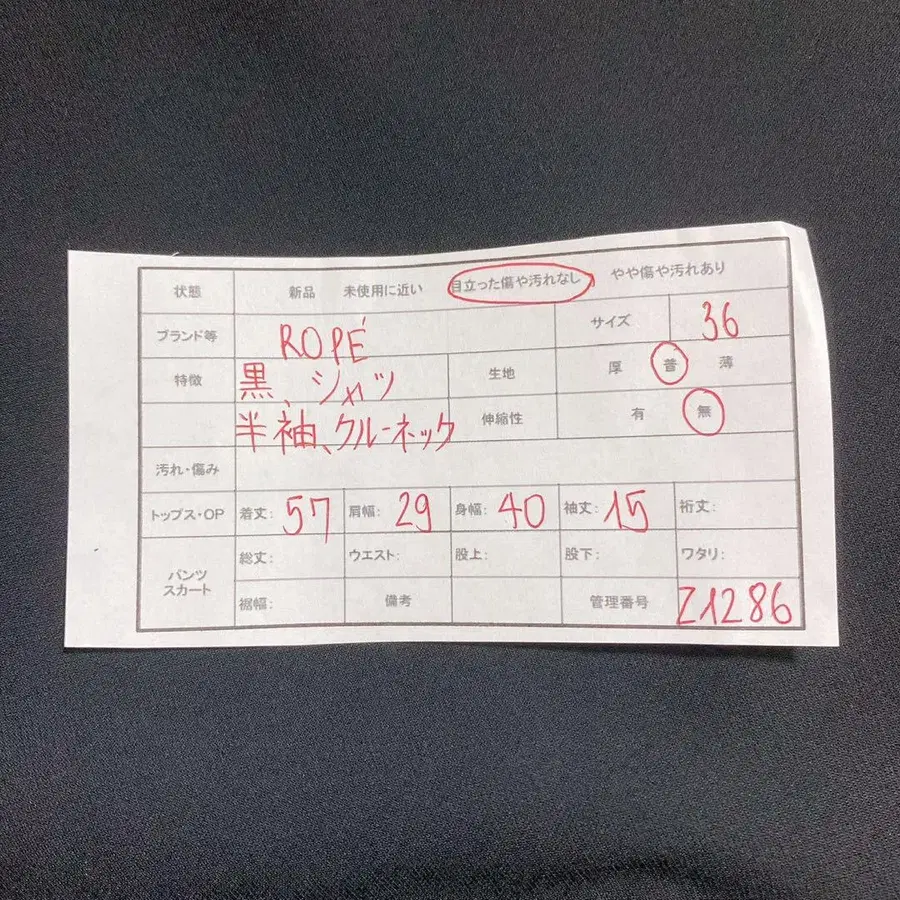 状態 新品 未使用に近い 目立った傷や汚れなし やや傷や汚れあり
ブランド等 ROPÉ サイズ 36
特徴 黒、シャツ 生地 厚 普 薄
半袖、クルーネック 伸縮性 有 無
汚れ・傷み
トップス・OP 着丈: 57 肩幅: 29 身幅: 40 袖丈: 15 裄丈:
パンツ スカート 総丈: ウエスト: 股上: 股下: ワタリ:
裾幅: 備考 管理番号 Z1286